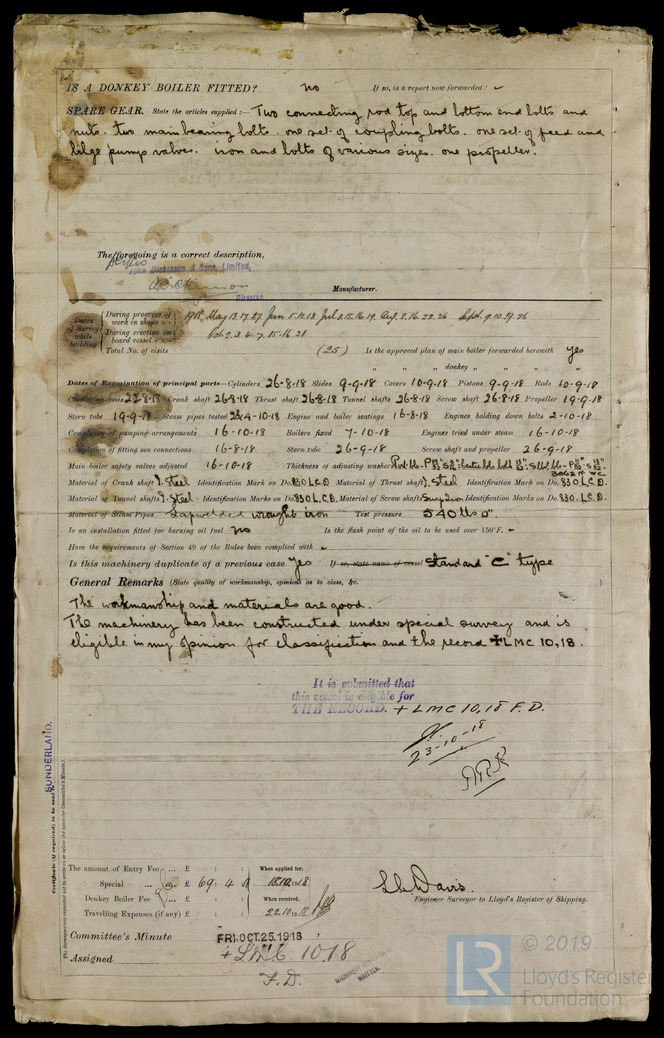 IS A DONKEY BOILER FITTED? no If so, is a report now forwarded :
SPARE GEAR. State the articles supplied :— Two connecting rod top and bottom end bolts and
nuts. two main bearing bolts. one set of coupling bolts. one set of feed and
bilge pump valves. iron and bolts of various sizes. one propeller.
The foregoing is a correct description,
John Dickinson & Sons, Limited,
Director
Manufacturer.
Dates of Survey while building
During progress of work in shops - - 1918. May 13.17.27 Jun 5.12.13 Jul 8.15.16.19. Aug. 8.16.22.26 Sept. 9.10.19.26
During erection on board vessel - - - Oct 2.3.4.7.15.16.21
Total No. of visits (25) Is the approved plan of main boiler forwarded herewith yes
" " " donkey " " "
Dates of Examination of principal parts—Cylinders 26-8-18 Slides 9-9-18 Covers 10-9-18 Pistons 9-9-18 Rods 10-9-18
Connecting rods 22-8-18 Crank shaft 26-8-18 Thrust shaft 26-8-18 Tunnel shafts 26-8-18 Screw shaft 26-8-18 Propeller 19-9-18
Stern tube 19-9-18 Steam pipes tested 4-10-18 Engine and boiler seatings 16-8-18 Engines holding down bolts 2-10-18
Completion of pumping arrangements 16-10-18 Boilers fixed 7-10-18 Engines tried under steam 16-10-18
Completion of fitting sea connections 16-8-18 Stern tube 26-9-18 Screw shaft and propeller 26-9-18
Main boiler safety valves adjusted 16-10-18 Thickness of adjusting washers
Material of Crank shaft I. Steel Identification Mark on Do. 830 L.C.D. Material of Thrust shaft I. Steel Identification Mark on Do. 830 L.C.D.
Material of Tunnel shafts I. Steel Identification Marks on Do. 830 L.C.D. Material of Screw shafts Identification Marks on Do. 830. L.C.D.
Material of Steam Pipes Lapwelded wrought iron Test pressure 540 lbs □"
Is an installation fitted for burning oil fuel no Is the flash point of the oil to be used over 150°F. -
Have the requirements of Section 49 of the Rules been complied with -
Is this machinery duplicate of a previous case Yes If so, state name of vessel Standard "C" type
General Remarks (State quality of workmanship, opinions as to class, &c.
The workmanship and materials are good.
The machinery has been constructed under special survey and is
eligible in my opinion for classification and the record + LMC 10,18.
It is submitted that
this vessel is eligible for
THE RECORD. + LMC 10,18 F.D.
23-10-18
SUNDERLAND.
Certificate (if required) to be sent to
The amount of Entry Fee ... £ : : When applied for,
Special ... £ 69 : 4 : 18.10.1918
Donkey Boiler Fee ... £ : : When received,
Travelling Expenses (if any) £ : : 22.10.18
L.C. Davis.
Engineer Surveyor to Lloyd's Register of Shipping.
Committee's Minute FRI. OCT. 25. 1918
Assigned + LMC. 10.18
F.D.
MACHINERY CERTIFICATE
WRITTEN.
LR © 2019
Lloyd's Register
Foundation